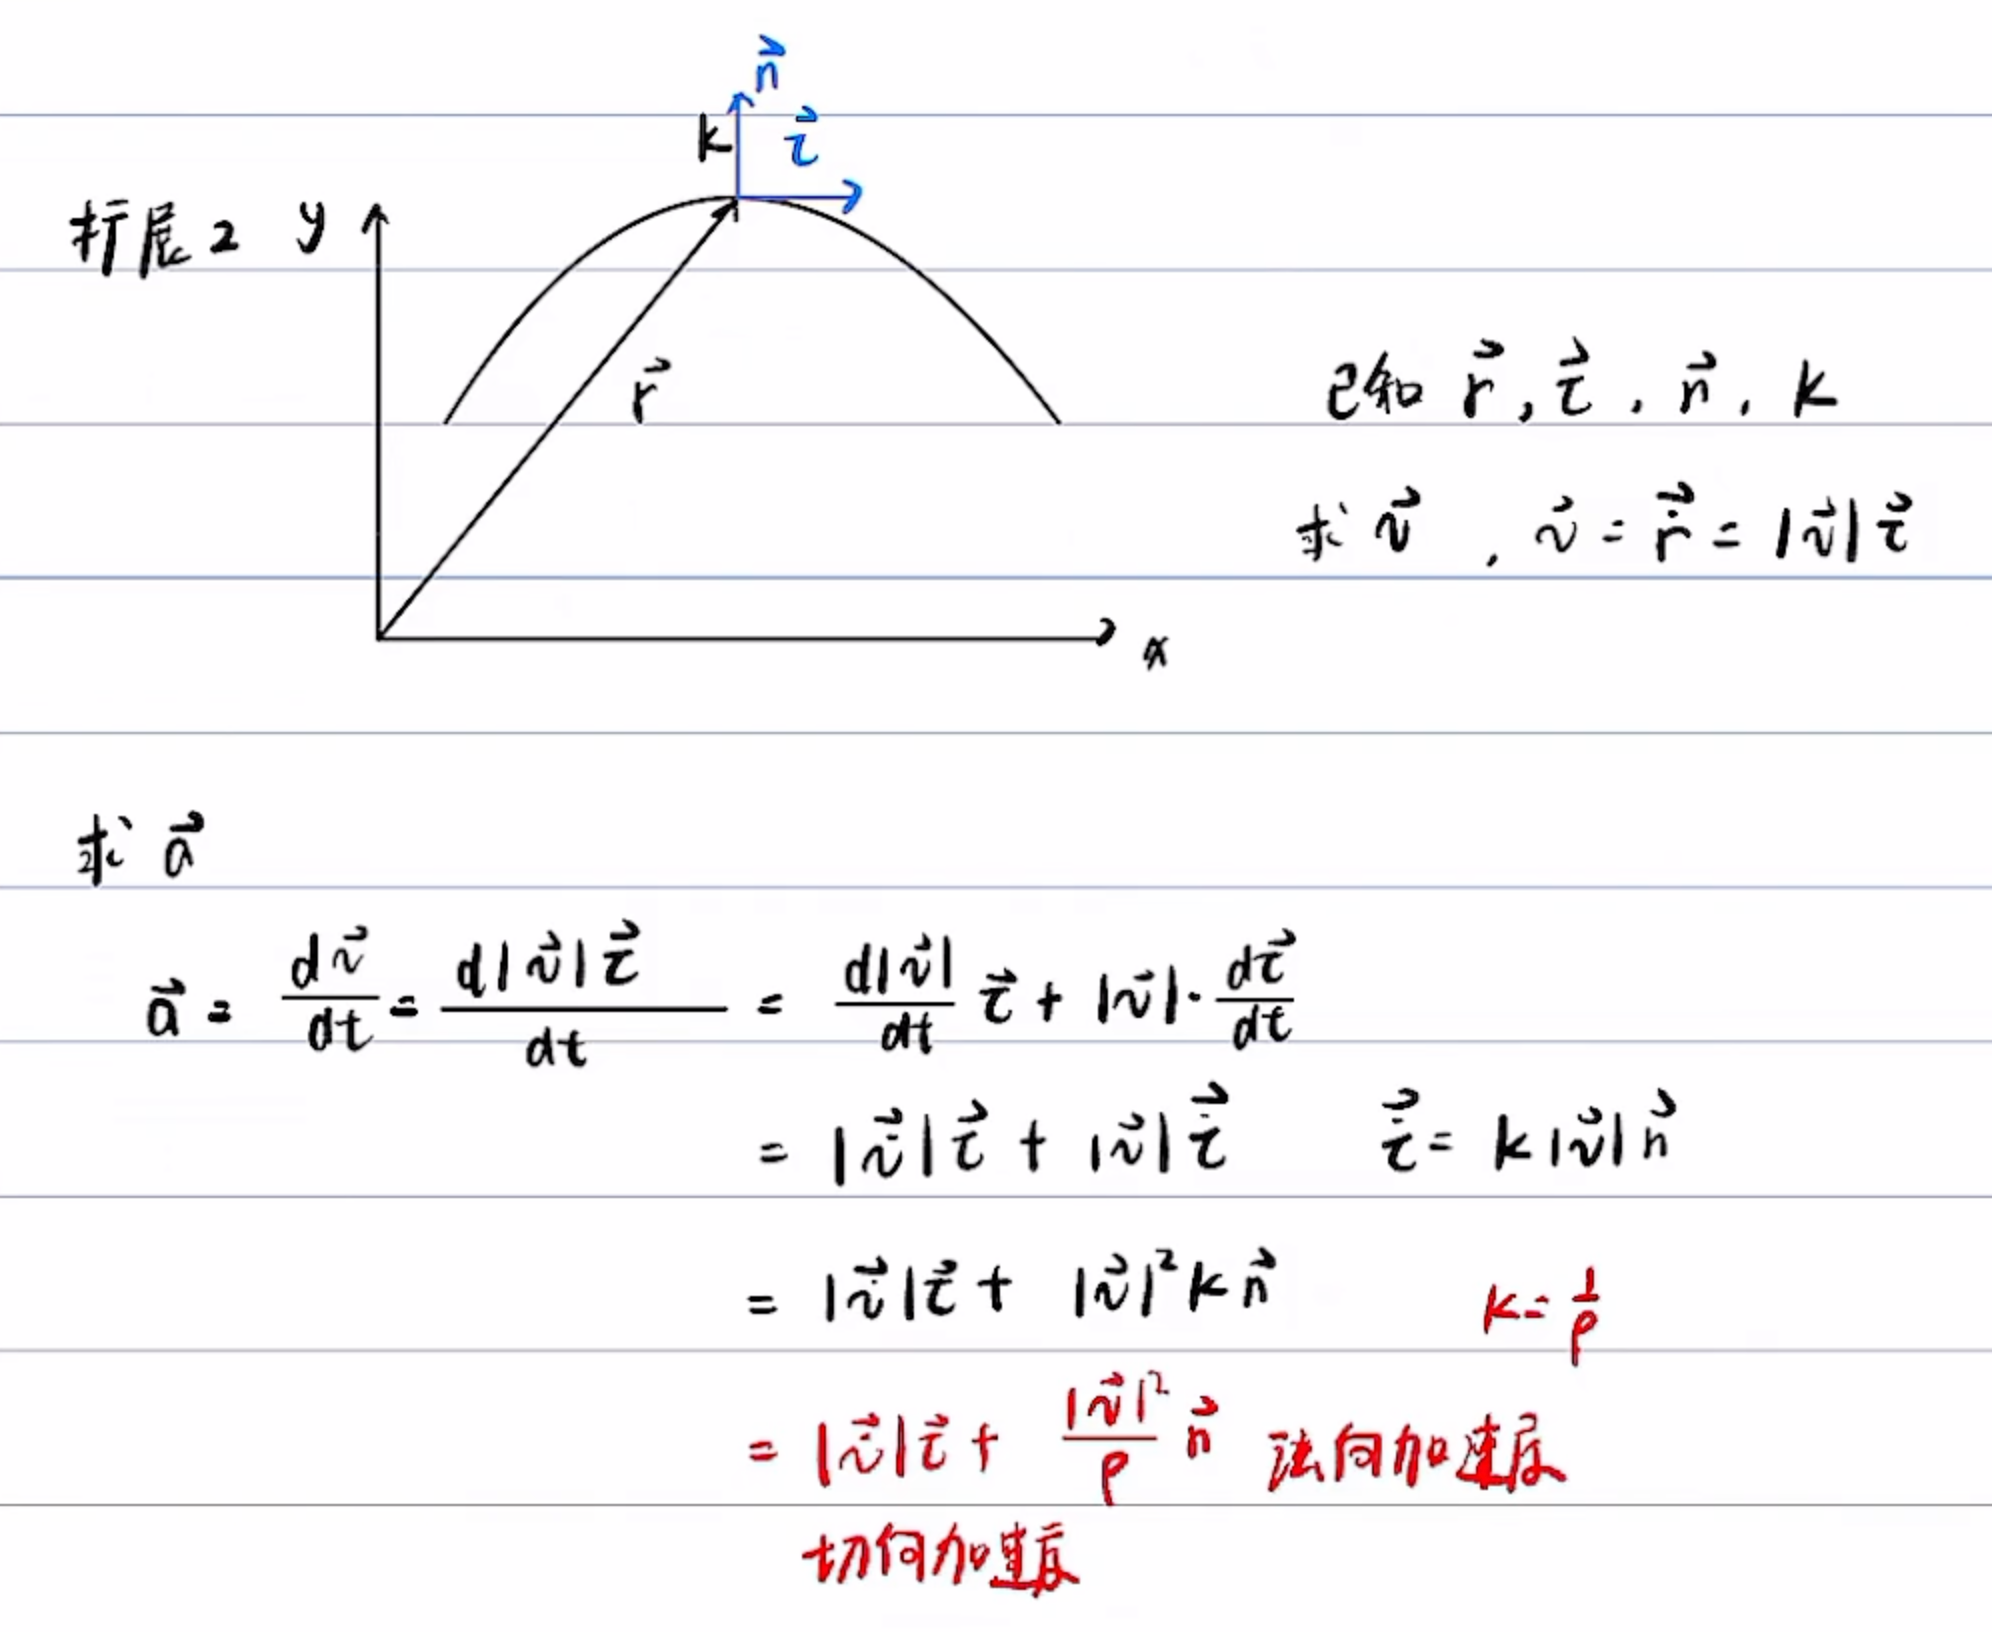 n⃗
k τ⃗
扩展2 y
r⃗
已知 r⃗, τ⃗, n⃗, k
求 v⃗, v⃗ = ṙ⃗ = |v⃗|τ⃗
x
求 a⃗
a⃗ = dv⃗/dt = d|v⃗|τ⃗/dt = d|v⃗|/dt τ⃗ + |v⃗|·dτ⃗/dt
= |v̇⃗|τ⃗ + |v⃗|τ̇⃗ τ̇⃗ = k|v⃗|n⃗
= |v̇⃗|τ⃗ + |v⃗|²kn⃗ k=1/ρ
= |v̇⃗|τ⃗ + |v⃗|²/ρ n⃗ 法向加速度
切向加速度